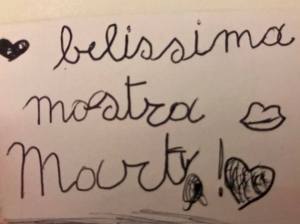 belissima
mostra
Marty!